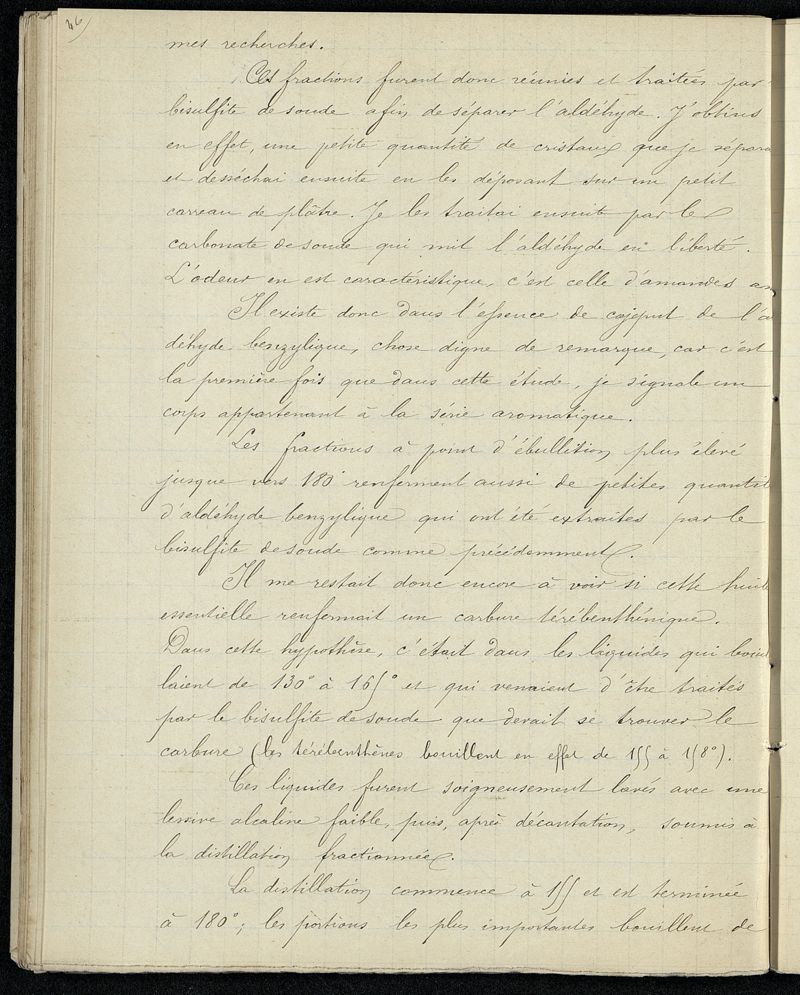 46
mes recherches.
Ces fractions furent donc réunies et traitées par
bisulfite de soude afin de séparer l'aldéhyde. J'obtins
en effet, une petite quantité de cristaux que je sépara
et desséchai ensuite en les déposant sur un petit
carreau de plâtre. Je les traitai ensuite par le
carbonate de soude qui mit l'aldéhyde en liberté.
L'odeur en est caractéristique, c'est celle d'amandes am
Il existe donc dans l'essence de cajeput de l'a
déhyde benzylique, chose digne de remarque, car c'est
la première fois que dans cette étude, je signale un
corps appartenant à la série aromatique.
Les fractions à point d'ébullition plus élevé
jusque vers 180° renferment aussi de petites quantit
d'aldéhyde benzylique qui ont été extraites par le
bisulfite de soude comme précédemment.
Il me restait donc encore à voir si cette huile
essentielle renfermait un carbure térébenthénique.
Dans cette hypothèse, c'était dans les liquides qui bouil
laient de 130° à 165° et qui venaient d'être traités
par le bisulfite de soude que devait se trouver le
carbure (les térébenthènes bouillent en effet de 155 à 158°).
Ces liquides furent soigneusement lavés avec une
lessive alcaline faible, puis, après décantation, soumis à
la distillation fractionnée.
La distillation commence à 155 et est terminée
à 180°; les portions les plus importantes bouillent de